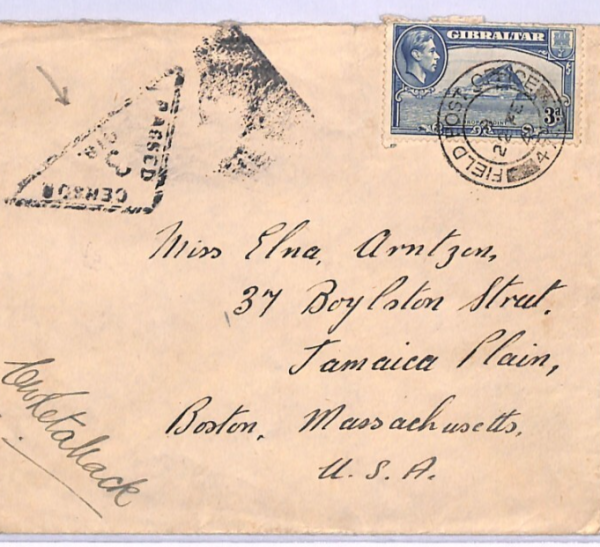 GIBRALTAR
3d
FIELD POST OFFICE
PASSED
CENSOR
Miss Elna, Arntzen,
37 Boylston Street.
Jamaica Plain,
Boston, Massachusetts,
U. S. A.